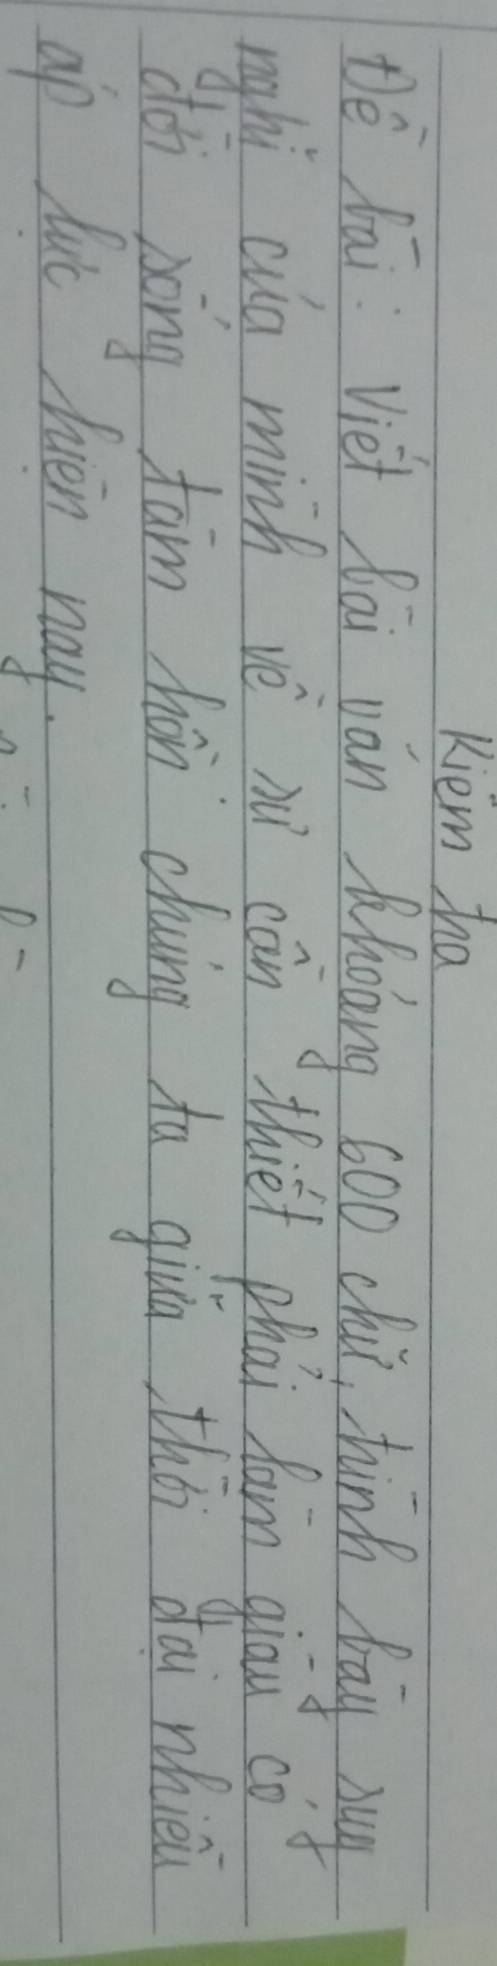 Kiểm tra
Đề bài: Viết bài văn khoảng 600 chữ, trình bày suy
nghĩ của mình về sự cần thiết phải làm giàu có
đời sống tâm hồn chúng ta giữa thời đại nhiều
áp lực hiện nay.